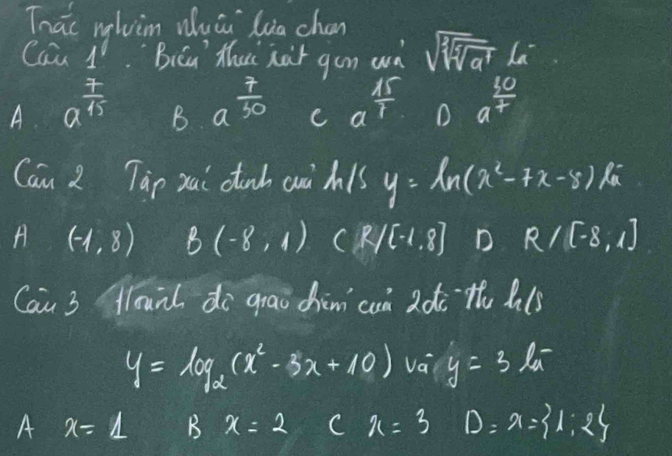 Trắc nghiệm nhiều lựa chọn
Câu 1. Biểu thức rút gọn của \sqrt{\sqrt[3]{\sqrt[5]{a^7}}} là
A. a^{\frac{7}{15}} B. a^{\frac{7}{30}} C a^{\frac{15}{7}} D a^{\frac{30}{7}}
Câu 2 Tập xác định của h/s y = ln(x² - 7x - 8) là
A (-1, 8) B (-8, 1) C R/[-1,8] D R/[-8;1]
Câu 3 Hoành độ giao điểm của 2 đồ thị h/s
y = log₂(x² - 3x + 10) và y = 3 là
A x = 1 B x = 2 C x = 3 D = x = {1; 2}